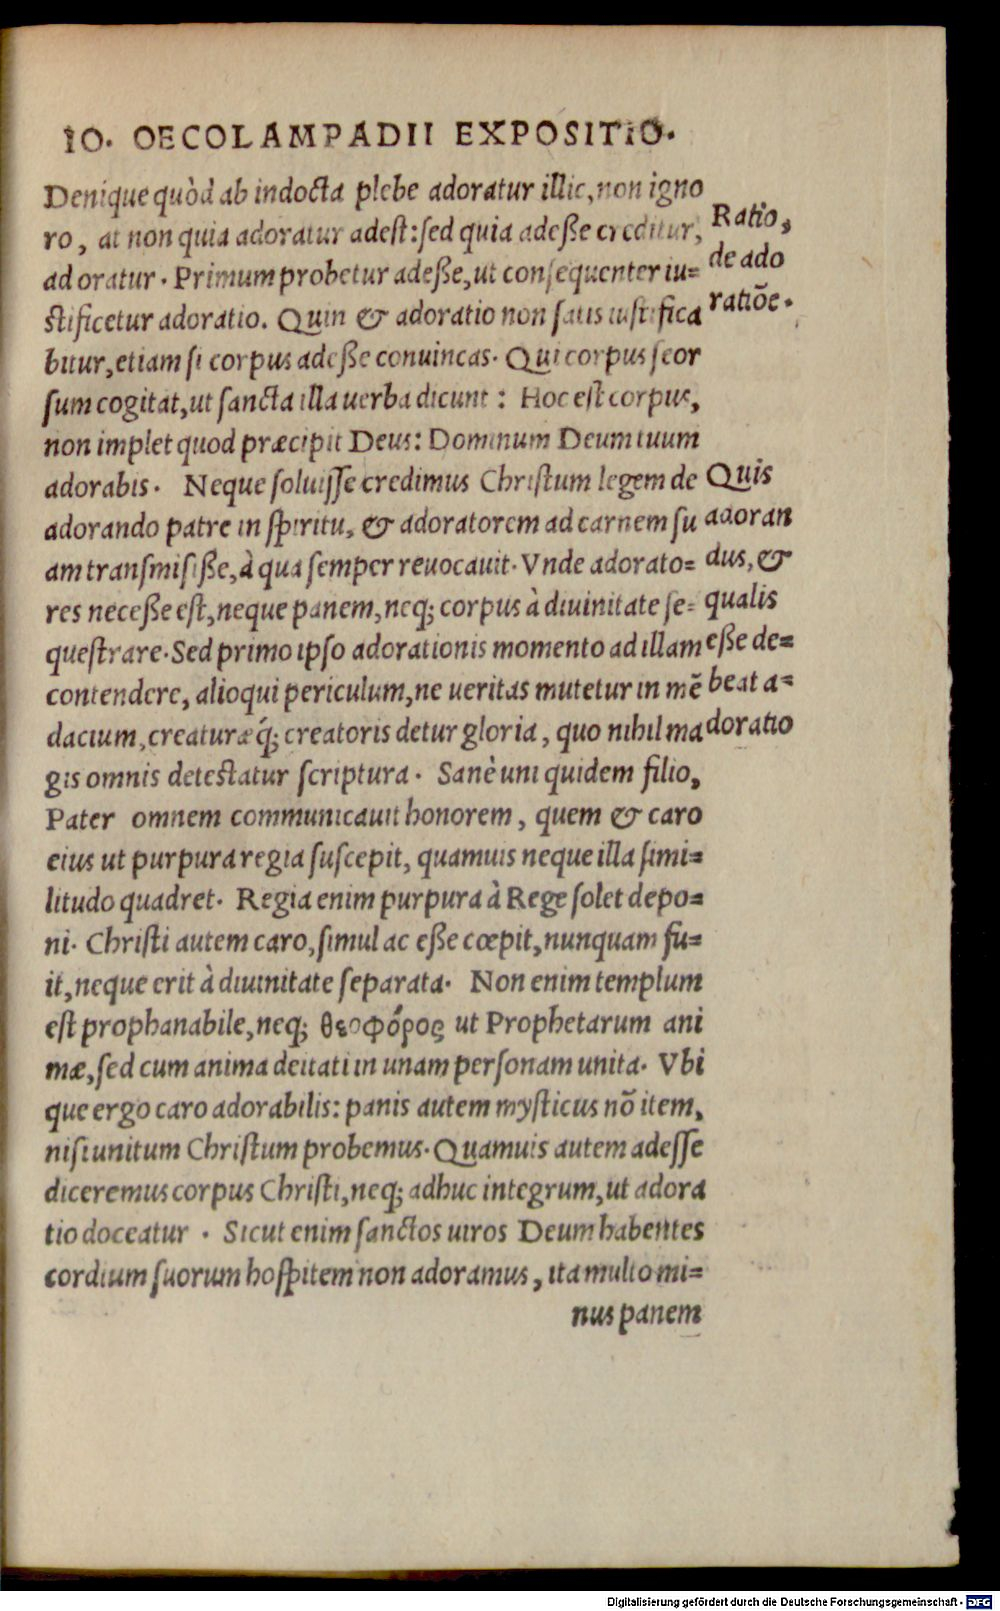 IO. OECOLAMPADII EXPOSITIO.
Denique quòd ab indocta plebe adoratur illic, non igno
ro, at non quia adoratur adest: sed quia adeße creditur,
adoratur. Primum probetur adeße, ut consequenter iu=
stificetur adoratio. Quin & adoratio non satis iustifica
bitur, etiam si corpus adeße conuincas. Qui corpus seor
sum cogitat, ut sancta illa uerba dicunt: Hoc est corpus,
non implet quod præcipit Deus: Dominum Deum tuum
adorabis. Neque soluisse credimus Christum legem de
adorando patre in spiritu, & adoratorem ad carnem su
am transmisiße, à qua semper reuocauit. Vnde adorato=
res neceße est, neque panem, neq; corpus à diuinitate se=
questrare. Sed primo ipso adorationis momento ad illam
contendere, alioqui periculum, ne ueritas mutetur in mē
dacium, creaturæq́; creatoris detur gloria, quo nihil ma
gis omnis detestatur scriptura. Sanè uni quidem filio,
Pater omnem communicauit honorem, quem & caro
eius ut purpura regia suscepit, quamuis neque illa simi=
litudo quadret. Regia enim purpura à Rege solet depo=
ni. Christi autem caro, simul ac eße cœpit, nunquam fu=
it, neque erit à diuinitate separata. Non enim templum
est prophanabile, neq; θεοφόρος ut Prophetarum ani
mæ, sed cum anima deitati in unam personam unita. Vbi
que ergo caro adorabilis: panis autem mysticus nō item,
nisi unitum Christum probemus. Quamuis autem adesse
diceremus corpus Christi, neq; adhuc integrum, ut adora
tio doceatur. Sicut enim sanctos uiros Deum habentes
cordium suorum hospitem non adoramus, ita multo mi=
nus panem
Ratio,
de ado
ratiōe.
Quis
adoran
dus, &
qualis
eße de=
beat a=
doratio
Digitalisierung gefördert durch die Deutsche Forschungsgemeinschaft - DFG